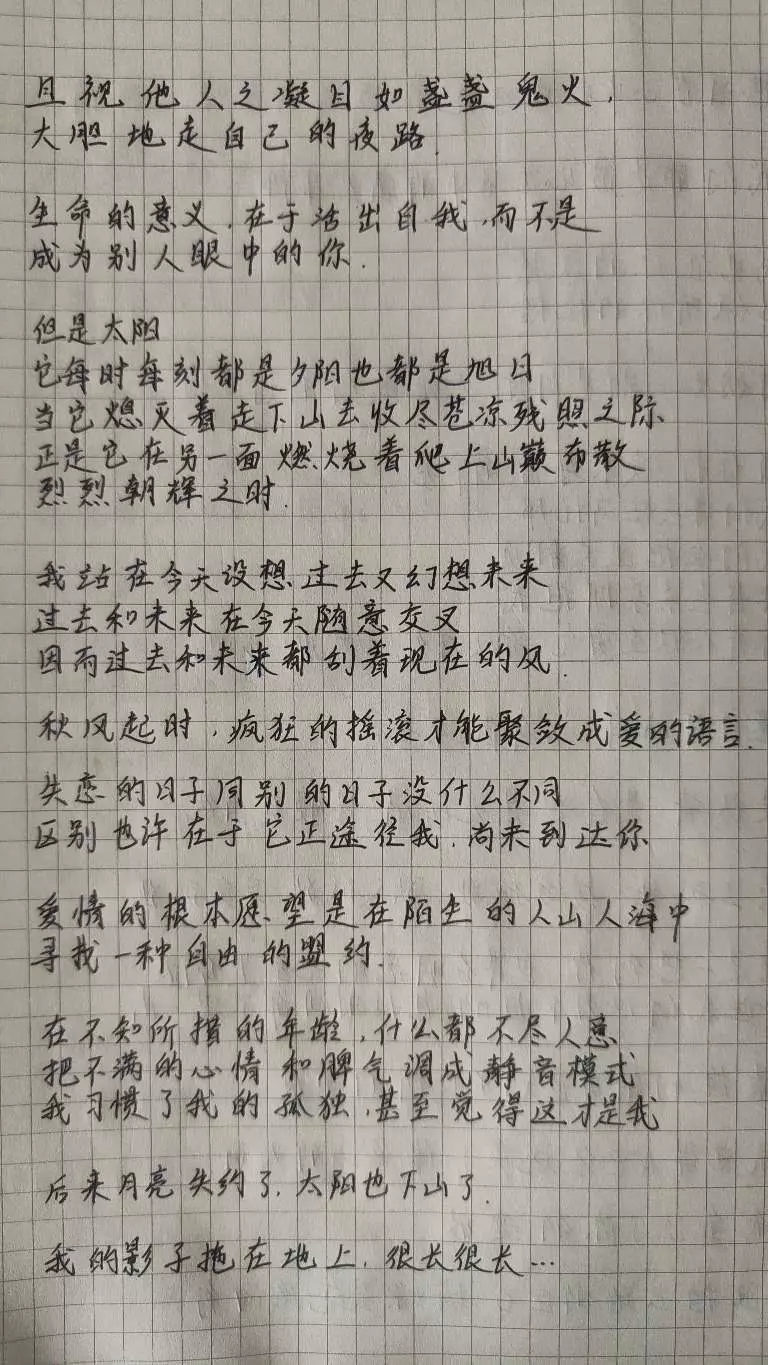 且视他人之凝目如盏盏鬼火，
大胆地走自己的夜路.
生命的意义，在于活出自我，而不是
成为别人眼中的你.
但是太阳
它每时每刻都是夕阳也都是旭日
当它熄灭着走下山去收尽苍凉残照之际
正是它在另一面燃烧着爬上山巅布散
烈烈朝辉之时.
我站在今天设想过去又幻想未来
过去和未来在今天随意交叉
因而过去和未来都刮着现在的风.
秋风起时，疯狂的摇滚才能聚敛成爱的语言.
失恋的日子同别的日子没什么不同
区别也许在于它正途径我.尚未到达你
爱情的根本愿望是在陌生的人山人海中
寻找一种自由的盟约.
在不知所措的年龄，什么都不尽人意
把不满的心情和脾气调成静音模式
我习惯了我的孤独，甚至觉得这才是我
后来月亮失约了.太阳也下山了.
我的影子拖在地上.很长很长…